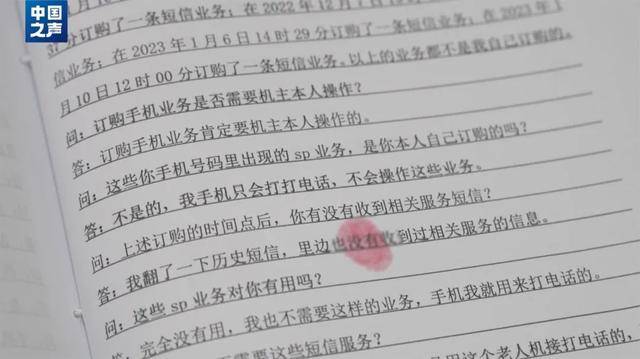 中国之声
37 分订购了一条短信业务；在 2022 年 12 月 7 日 13
信业务；在 2023 年 1 月 6 日 14 时 29 分订购了一条短信业
月 10 日 12 时 00 分订购了一条短信业务。以上的业务都不是我自己订购的。
问：订购手机业务是否需要机主本人操作？
答：订购手机业务肯定要机主本人操作的。
问：这些你手机号码里出现的 sp 业务，是你本人自己订购的吗？
答：不是的，我手机只会打打电话，不会操作这些业务。
问：上述订购的时间点后，你有没有收到相关服务短信？
答：我翻了一下历史短信，里边也没有收到过相关服务的信息。
问：这些 sp 业务对你有用吗？
答：完全没有用，我也不需要这样的业务，手机我就用来打电话的。
需要这些短信服务？
用这个老人机接打电话的，